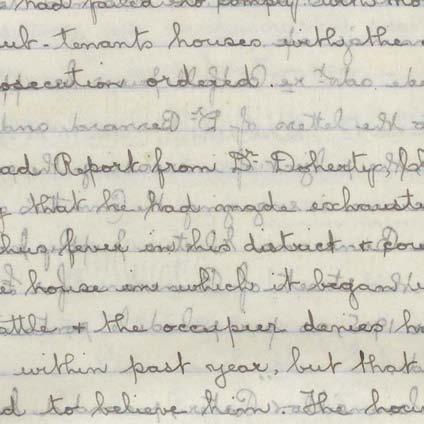 had failed to comply with
sub-tenants houses with the
prosecution ordered.
Read Report from Dr. Doherty,
that he had made exhauste
this fever in this district & fou
house in which it began
attle & the occupier denies
within past year, but that
d to believe him. The hou